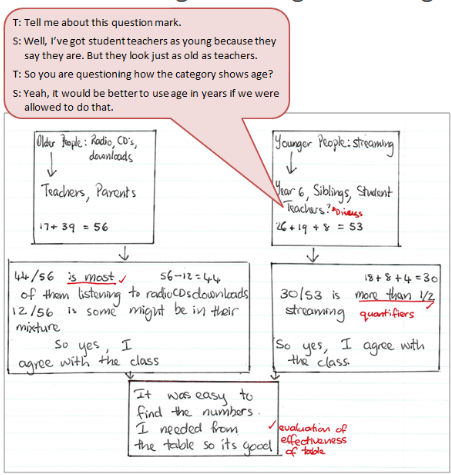 T: Tell me about this question mark.
S: Well, I've got student teachers as young because they
say they are. But they look just as old as teachers.
T: So you are questioning how the category shows age?
S: Yeah, it would be better to use age in years if we were
allowed to do that.
Older People: Radio, CD's,
downloads
Teachers, Parents
17+ 39 = 56
Younger People: streaming
Year 6, Siblings, Student
Teachers? Discuss
26+19 + 8 = 53
44/56 is most ✓ 56-12=44
of them listening to radioCDsdownloads
12/56 is some might be in their
mixture
So yes, I
agree with the class
18+8+4=30
30/53 is more than 1/2
streaming quantifiers ✓
So yes, I agree with
the class
It was easy to
find the numbers.
I needed from
the table so its good
✓ evaluation of
effectiveness
of table